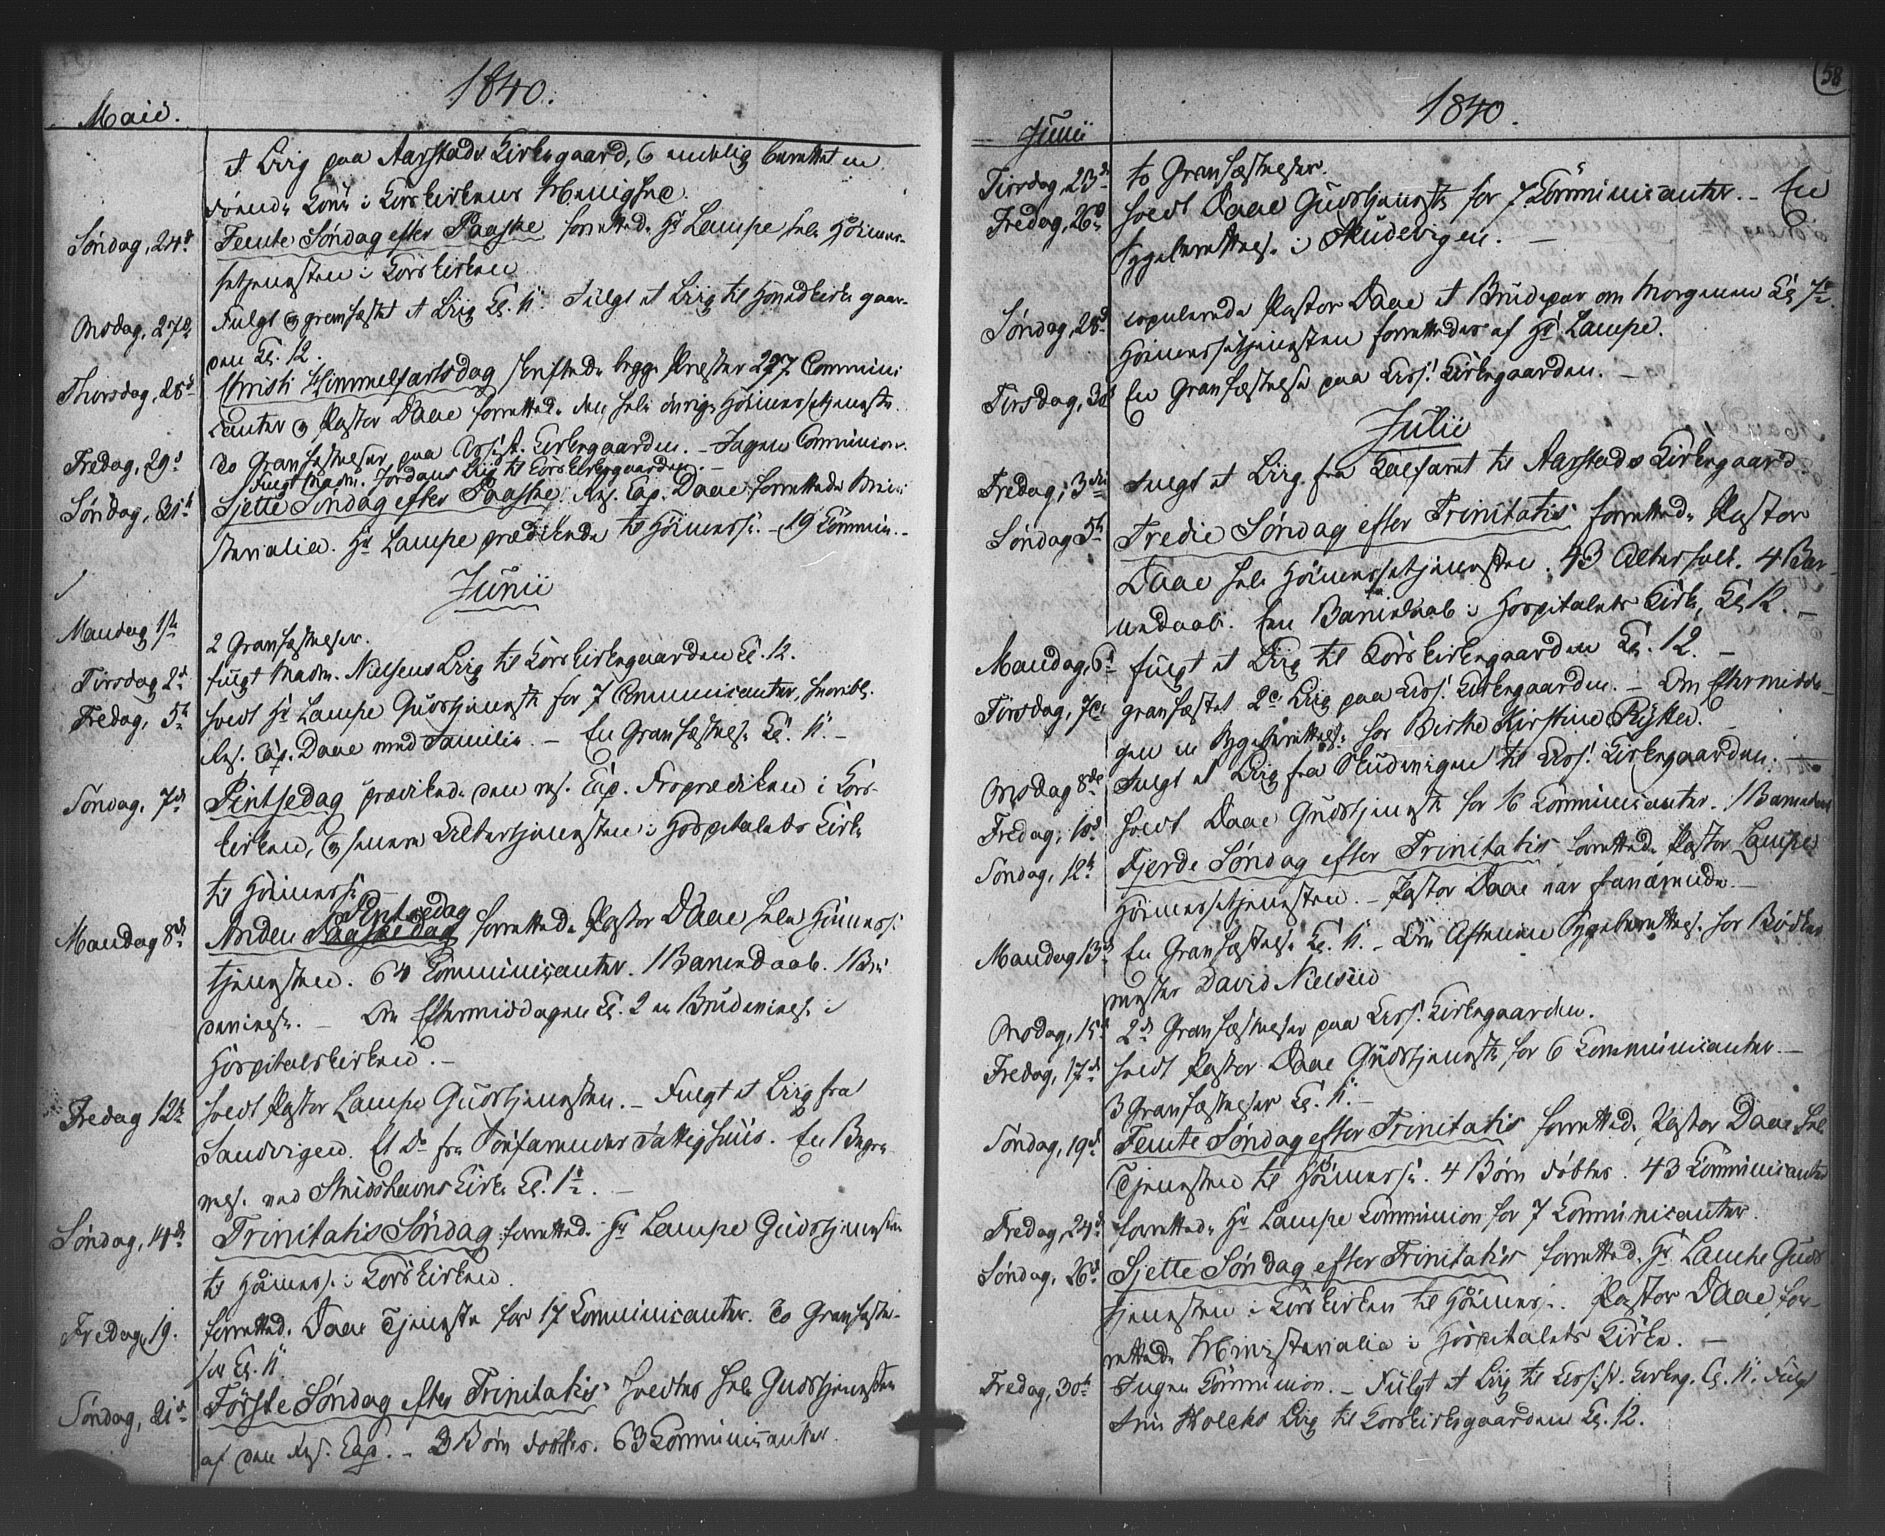 1840.
Maid.
et Liig paa Aarstads Kirkegaard, & endelig berettet en
döende Kone i Korskirkens Menighed.
Søndag, 24d Femte Søndag efter Paaske forrettede Hr Lampe hele Höimes-
setjenesten i Korskirken
Onsdag, 27d Fulgt og grandfæstet et Liig Kl. 11. Fulgt et Liig til Kirkegaar-
den Kl. 12.
Thorsdag, 28d Christi Himmelfartsdag skriftede begge Præster 227 Communi
canter og Pastor Daae forrettede den hele övrige Höimessetjeneste.
Fredag, 29d To Gravfæstelser paa Assist. Kirkegaarden. – Ingen Communion.
Fulgt Madm. Jordans Liig til Korskirkegaarden. –
Søndag, 31t Sjette Søndag efter Paaske. Res. Cap. Daae forrettede Mini
sterialia. Hr Lampe prædikede til Höimesse. – 19 Commun. –
Junii
Mandag 1ste 2 Gravfæstelser.
Tirsdag 2d fulgt Madm. Nielsens Liig til Korskirkegaarden Kl. 12.
Fredag, 5te holdt Hr Lampe Gudstjeneste for 7 Communicanter,
Res. Cap. Daae med Familie. – En Gravfæstelse Kl. 11. –
Söndag, 7d Pintsedag prædikede den res. Cap. Froprædiken i Kors-
kirken, og senere Altertjenesten i Hospitalets Kirke
til Höimesse. –
Mandag 8de Anden Paaskedag Pintsedag forrettede Pastor Daae hele Höimesse
tjenesten. 64 Communicanter. 1 Barnedaab. 1 Bru
devielse. – Om Eftermiddagen Kl. 2 en Brudevielse i
Hospitalskirken. –
Fredag 12te holdt Pastor Lampe Gudstjenesten. – Fulgt et Liig fra
Sandvigen. Et Do fra Söefarendes Fattighuus. En Begra
velse ved Kirke Kl. 1½. –
Søndag, 14de Trinitatis Söndag forrettede Hr Lampe Gudstjenesten
til Höimesse i Korskirken.
Fredag, 19. forrettede Daae Tjeneste for 17 Communicanter. To Gravfæstel-
ser Kl. 11.
Søndag, 21de Förste Søndag efter Trinitatis holdtes hele Gudstjenesten
af den Res. Cap. – 3 Börn döbtes. 63 Communicanter.
58
1840.
Junii
Tirsdag, 23de to Gravfæstelser.
Fredag, 26d holdt Daae Gudstjeneste for 7 Communicanter. – En
Sygeberettelse i Skudevigen. –
Søndag, 28d copulerede Pastor Daae et Brudepar om Morgenen Kl 7½.
Höimessetjenesten forrettedes af Hr Lampe.
Tirsdag, 30 En Gravfæstelse paa Assi. Kirkegaarden. –
Julii
Fredag, 3die Fulgt et Liig fra Kalfaret til Aarstads Kirkegaard.
Søndag 5te Tredie Søndag efter Trinitatis forrettede Pastor
Daae hele Höimessetjenesten. 43 Altersfolk. 4 Bar-
nedaab. En Barnedaab i Hospitalets Kirke, Kl 12. –
Mandag, 6d fulgt et Liig til Korskirkegaarden Kl. 12. –
Tirsdag, 7de gravfæstet 2de Liig paa Assi. Kirkegaarden. – Om Eftermidda-
gen en Sygeberettelse for Birthe Kirstine
Onsdag 8de Fulgt et Liig fra Skudevigen til Assi. Kirkegaarden. –
Fredag, 10d holdt Daae Gudstjeneste for 16 Communicanter. 1 Barnedaab
Søndag, 12te Fjerde Søndag efter Trinitatis forrettede Pastor Lampe
Höimessetjenesten. – Pastor Daae var fraværende. –
Mandag 13d En Gravfæstelse Kl. 11. – Om Aftenen Sygeberettelse for Bödker
mester David Nielsen
Onsdag, 15d 2de Gravfæstelser paa Assi. Kirkegaarden.
Fredag, 17de holdt Pastor Daae Gudstjeneste for 6 Communicanter. –
3 Gravfæstelser Kl. 11. –
Søndag, 19d Femte Søndag efter Trinitatis forrettede Pastor Daae hele
Tjenesten til Höimesse. 4 Börn döbtes. 43 Communicanter
Fredag, 24d forrettede Hr Lampe Communion for 7 Communicanter.
Søndag, 26d Sjette Søndag efter Trinitatis forrettede Hr Lampe Guds
tjenesten i Korskirken til Höimesse. Pastor Daae for-
rettede Ministerialia i Hospitalets Kirke. –
Fredag, 30te Ingen Communion. – Fulgt et Liig til Assist. Kirkeg. Kl. 11. Fulgt
Holcks Liig til Korskirkegaarden Kl. 12.